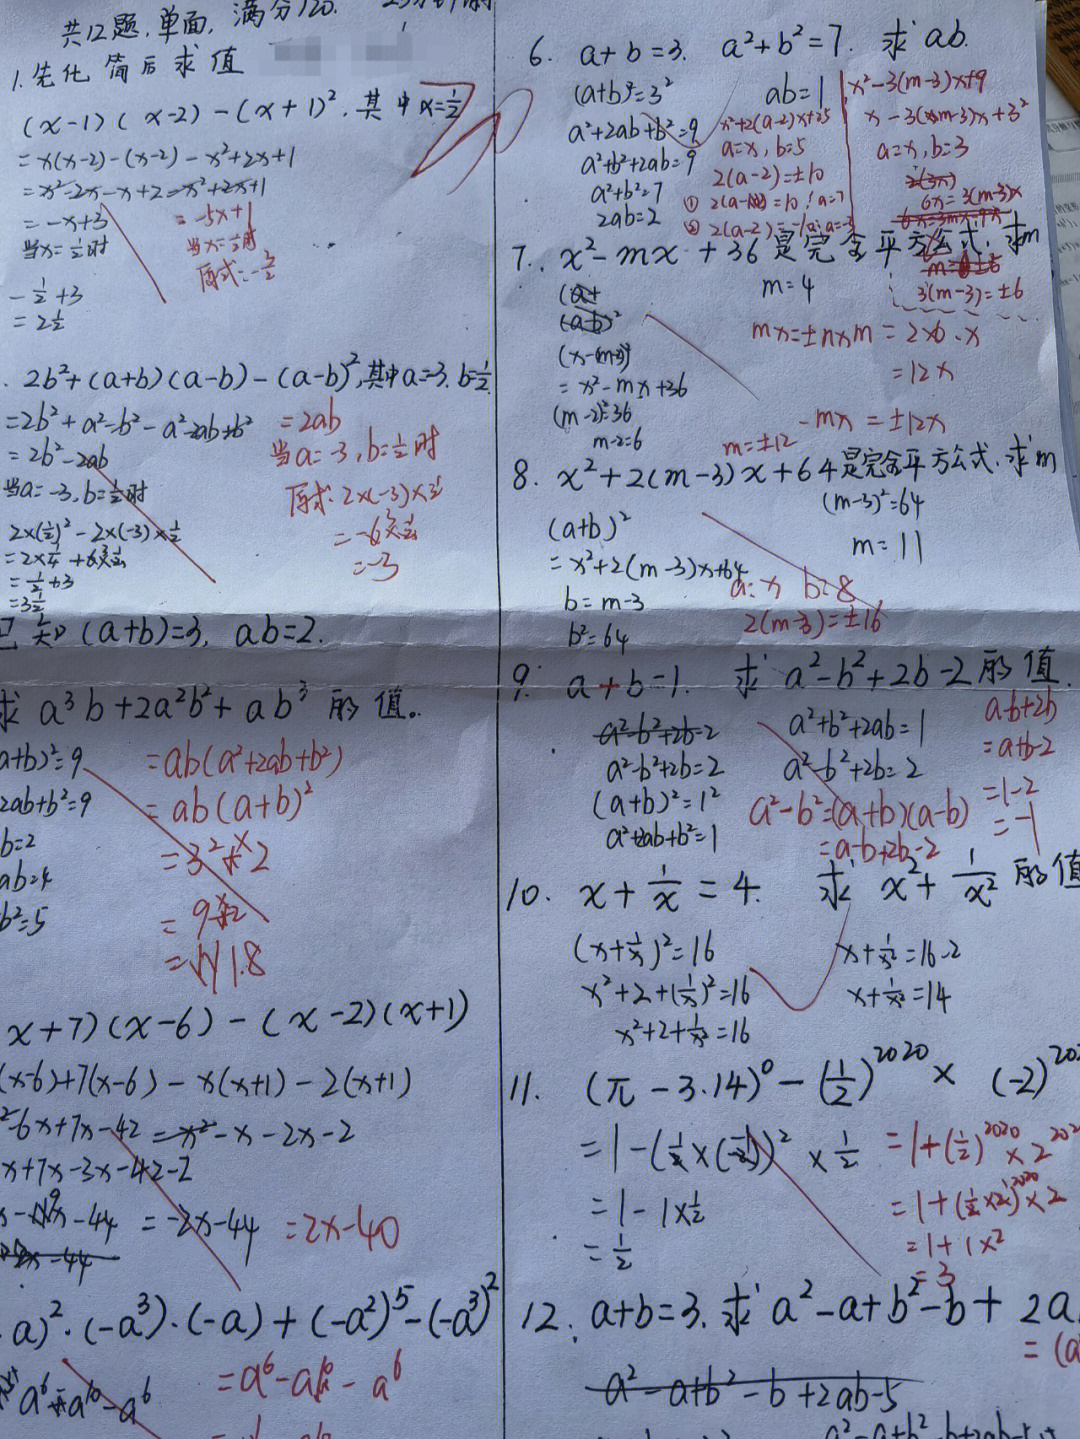 共12题，单面，满分120.
1.先化简后求值
(x-1)(x-2)-(x+1)²，其中x=½
=x(x-2)-(x-2)-x²+2x+1
=x²-2x-x+2-x²+2x+1
=-x+3
当x=½时
-½+3
=2½
=-5x+1
当x=½时
原式=-3/2
2b²+(a+b)(a-b)-(a-b)²，其中a=-3.b=½
=2b²+a²-b²-a²-2ab+b²
=2b²-2ab
当a=-3,b=½时
2×(½)²-2×(-3)×½
=2×¼+6×½
=½+3
=3½
=2ab
当a=-3,b=½时
原式=2×(-3)×½
=-6×½
=-3
已知(a+b)=3, ab=2.
求a³b+2a²b²+ab³的值。
a+b)²=9
2ab+b²=9
b=2
ab=4
b²=5
=ab(a²+2ab+b²)
=ab(a+b)²
=3²×2
=9×2
=18
x+7)(x-6)-(x-2)(x+1)
(x-6)+7(x-6)-x(x+1)-2(x+1)
²-6x+7x-42=x²-x-2x-2
x+7x-3x-42-2
-44 =-2x-44
=2x-40
a)²·(-a³)·(-a)+(-a²)⁵-(-a³)²
a⁶-a¹⁰-a⁶
=a⁶-a¹⁰-a⁶
70
6. a+b=3. a²+b²=7. 求ab.
(a+b)²=3²
a²+2ab+b²=9
a²+b²+2ab=9
a²+b²=7
2ab=2
ab=1
x²+2(a-2)x+25
a=x,b=5
2(a-2)=±10
① 2(a-2)=10 a=7
x²-3(m-3)x+9
x-3(m-3)x+3²
a=x,b=3
6x=3(m-3)x
3(m-3)=±6
7. x²-mx+36是完全平方公式，求m
m=4
(a-b)²
=x²-mx+36
(m-2)²=36
m-2=6
mx=±nxm=2×6·x
=12x
-mx=±12x
m=±12
8. x²+2(m-3)x+64是完全平方公式.求m
(m-3)²=64
m=11
(a+b)²
=x²+2(m-3)x+64
b=m-3
b²=64
a=x b=8
2(m-3)=±16
9. a+b=1. 求a²-b²+2b-2的值.
a²-b²+2b=2
a²-b²+2b=2
(a+b)²=1²
a²+2ab+b²=1
a²+b²+2ab=1
a²-b²+2b=2
a²-b²=(a+b)(a-b)
=a-b+2b-2
a-b+2b
=a+b-2
=1-2
=-1
10. x+1/x=4. 求x²+1/x²的值
(x+1/x)²=16
x²+2+(1/x)²=16
x²+2+1/x²=16
x+1/x²=16-2
x+1/x²=14
11. (π-3.14)⁰-(½)²⁰²⁰×(-2)²⁰²
=1-(½×(-2))²×½
=1-1×½
=½
=1+(½)²⁰²⁰×2²⁰²
=1+(½×2)²⁰²⁰×2
=1+1×2
=3
12. a+b=3.求a²-a+b²-b+2a
=(a
a²-a+b²-b+2ab-5